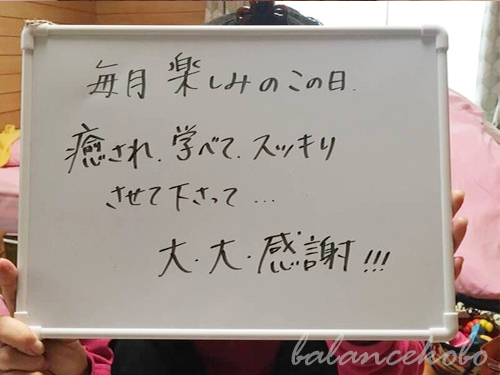 毎月 楽しみのこの日.
癒され.学べて.スッキリ
させて下さって...
大.大.感謝!!!
balancekobo